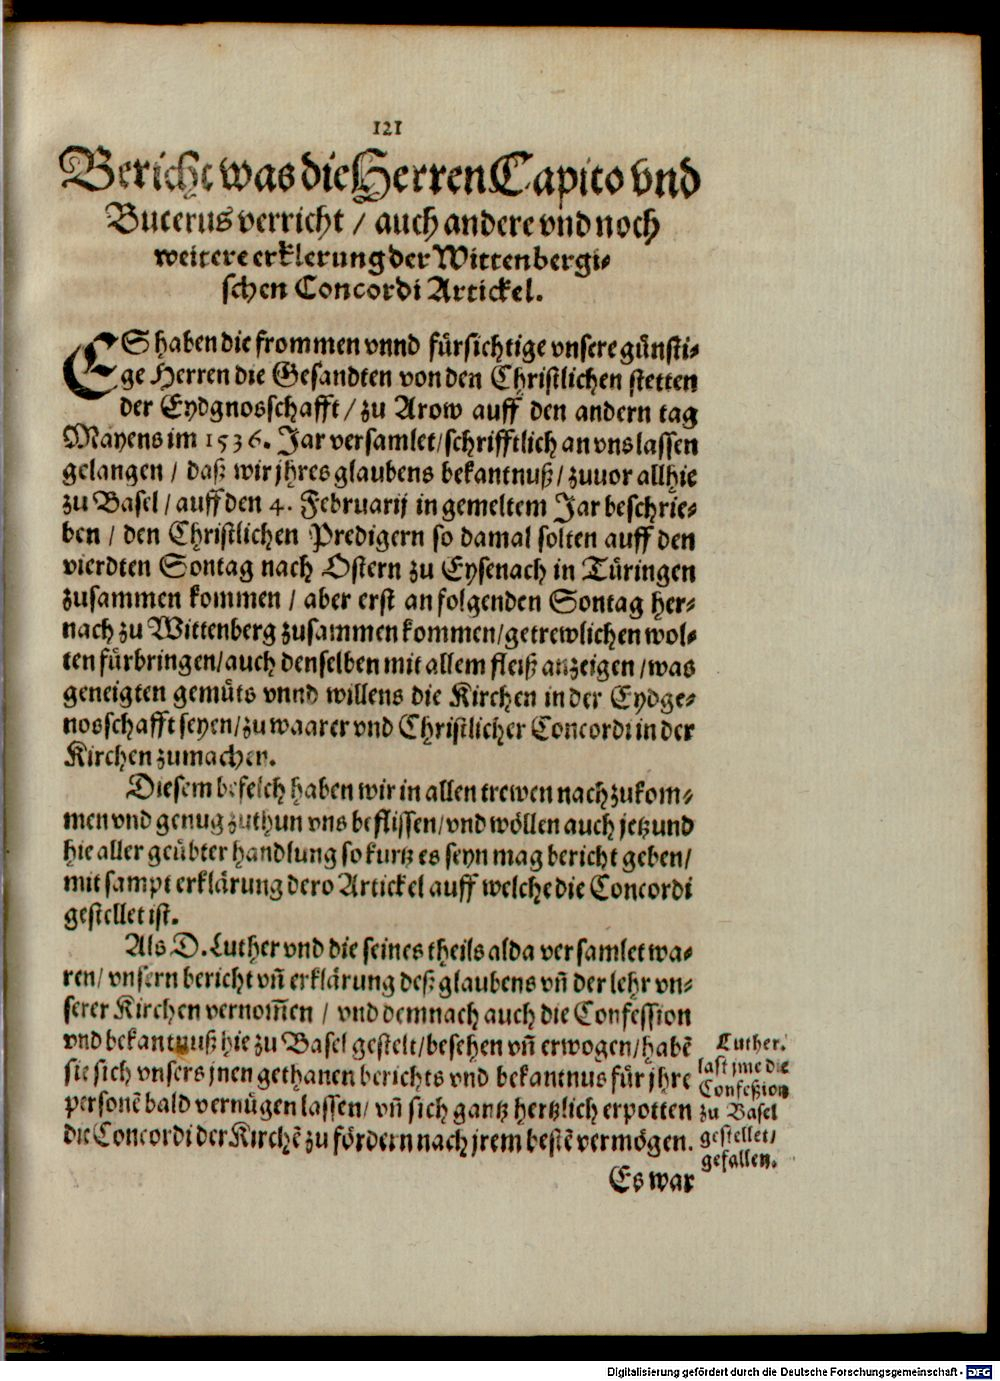 121
Bericht was die Herren Capito vnd
Bucerus verricht / auch andere vnd noch
weitere erklerung der Wittenbergi-
schen Concordi Artickel.
ES haben die frommen vnnd fürsichtige vnsere günsti-
ge Herren die Gesandten von den Christlichen stetten
der Eydgnosschafft / zu Arow auff den andern tag
Mayens im 1536. Jar versamlet / schrifftlich an vns lassen
gelangen / daß wir jhres glaubens bekantnuß / zuuor allhie
zu Basel / auff den 4. Februarij in gemeltem Jar beschrie-
ben / den Christlichen Predigern so damal solten auff den
vierdten Sontag nach Ostern zu Eysenach in Türingen
zusammen kommen / aber erst an folgenden Sontag her-
nach zu Wittenberg zusammen kommen / getrewlichen wol-
ten fürbringen / auch denselben mit allem fleiß anzeigen / was
geneigten gemüts vnnd willens die Kirchen in der Eydge-
nosschafft seyen / zu waarer vnd Christlicher Concordi in der
Kirchen zumachen.
Diesem befelch haben wir in allen trewen nachzukom-
men vnd genug zuthun vns beflissen / vnd wöllen auch jetzund
hie aller geübter handlung so kurtz es seyn mag bericht geben /
mit sampt erklärung dero Artickel auff welche die Concordi
gestellet ist.
Als D. Luther vnd die seines theils alda versamlet wa-
ren / vnsern bericht vñ erklärung deß glaubens vñ der lehr vn-
serer Kirchen vernom̃en / vnd demnach auch die Confession
vnd bekantnuß hie zu Basel gestelt / besehen vñ erwogen / habẽ
sie sich vnsers jnen gethanen berichts vnd bekantnus für jhre
personẽ bald vernügen lassen / vñ sich gantz hertzlich erpotten
die Concordi der Kirchẽ zu fördern nach jrem bestẽ vermögen.
Luther.
last jme die
Confeßion
zu Basel
gestellet /
gefallen.
Es war
Digitalisierung gefördert durch die Deutsche Forschungsgemeinschaft - DFG